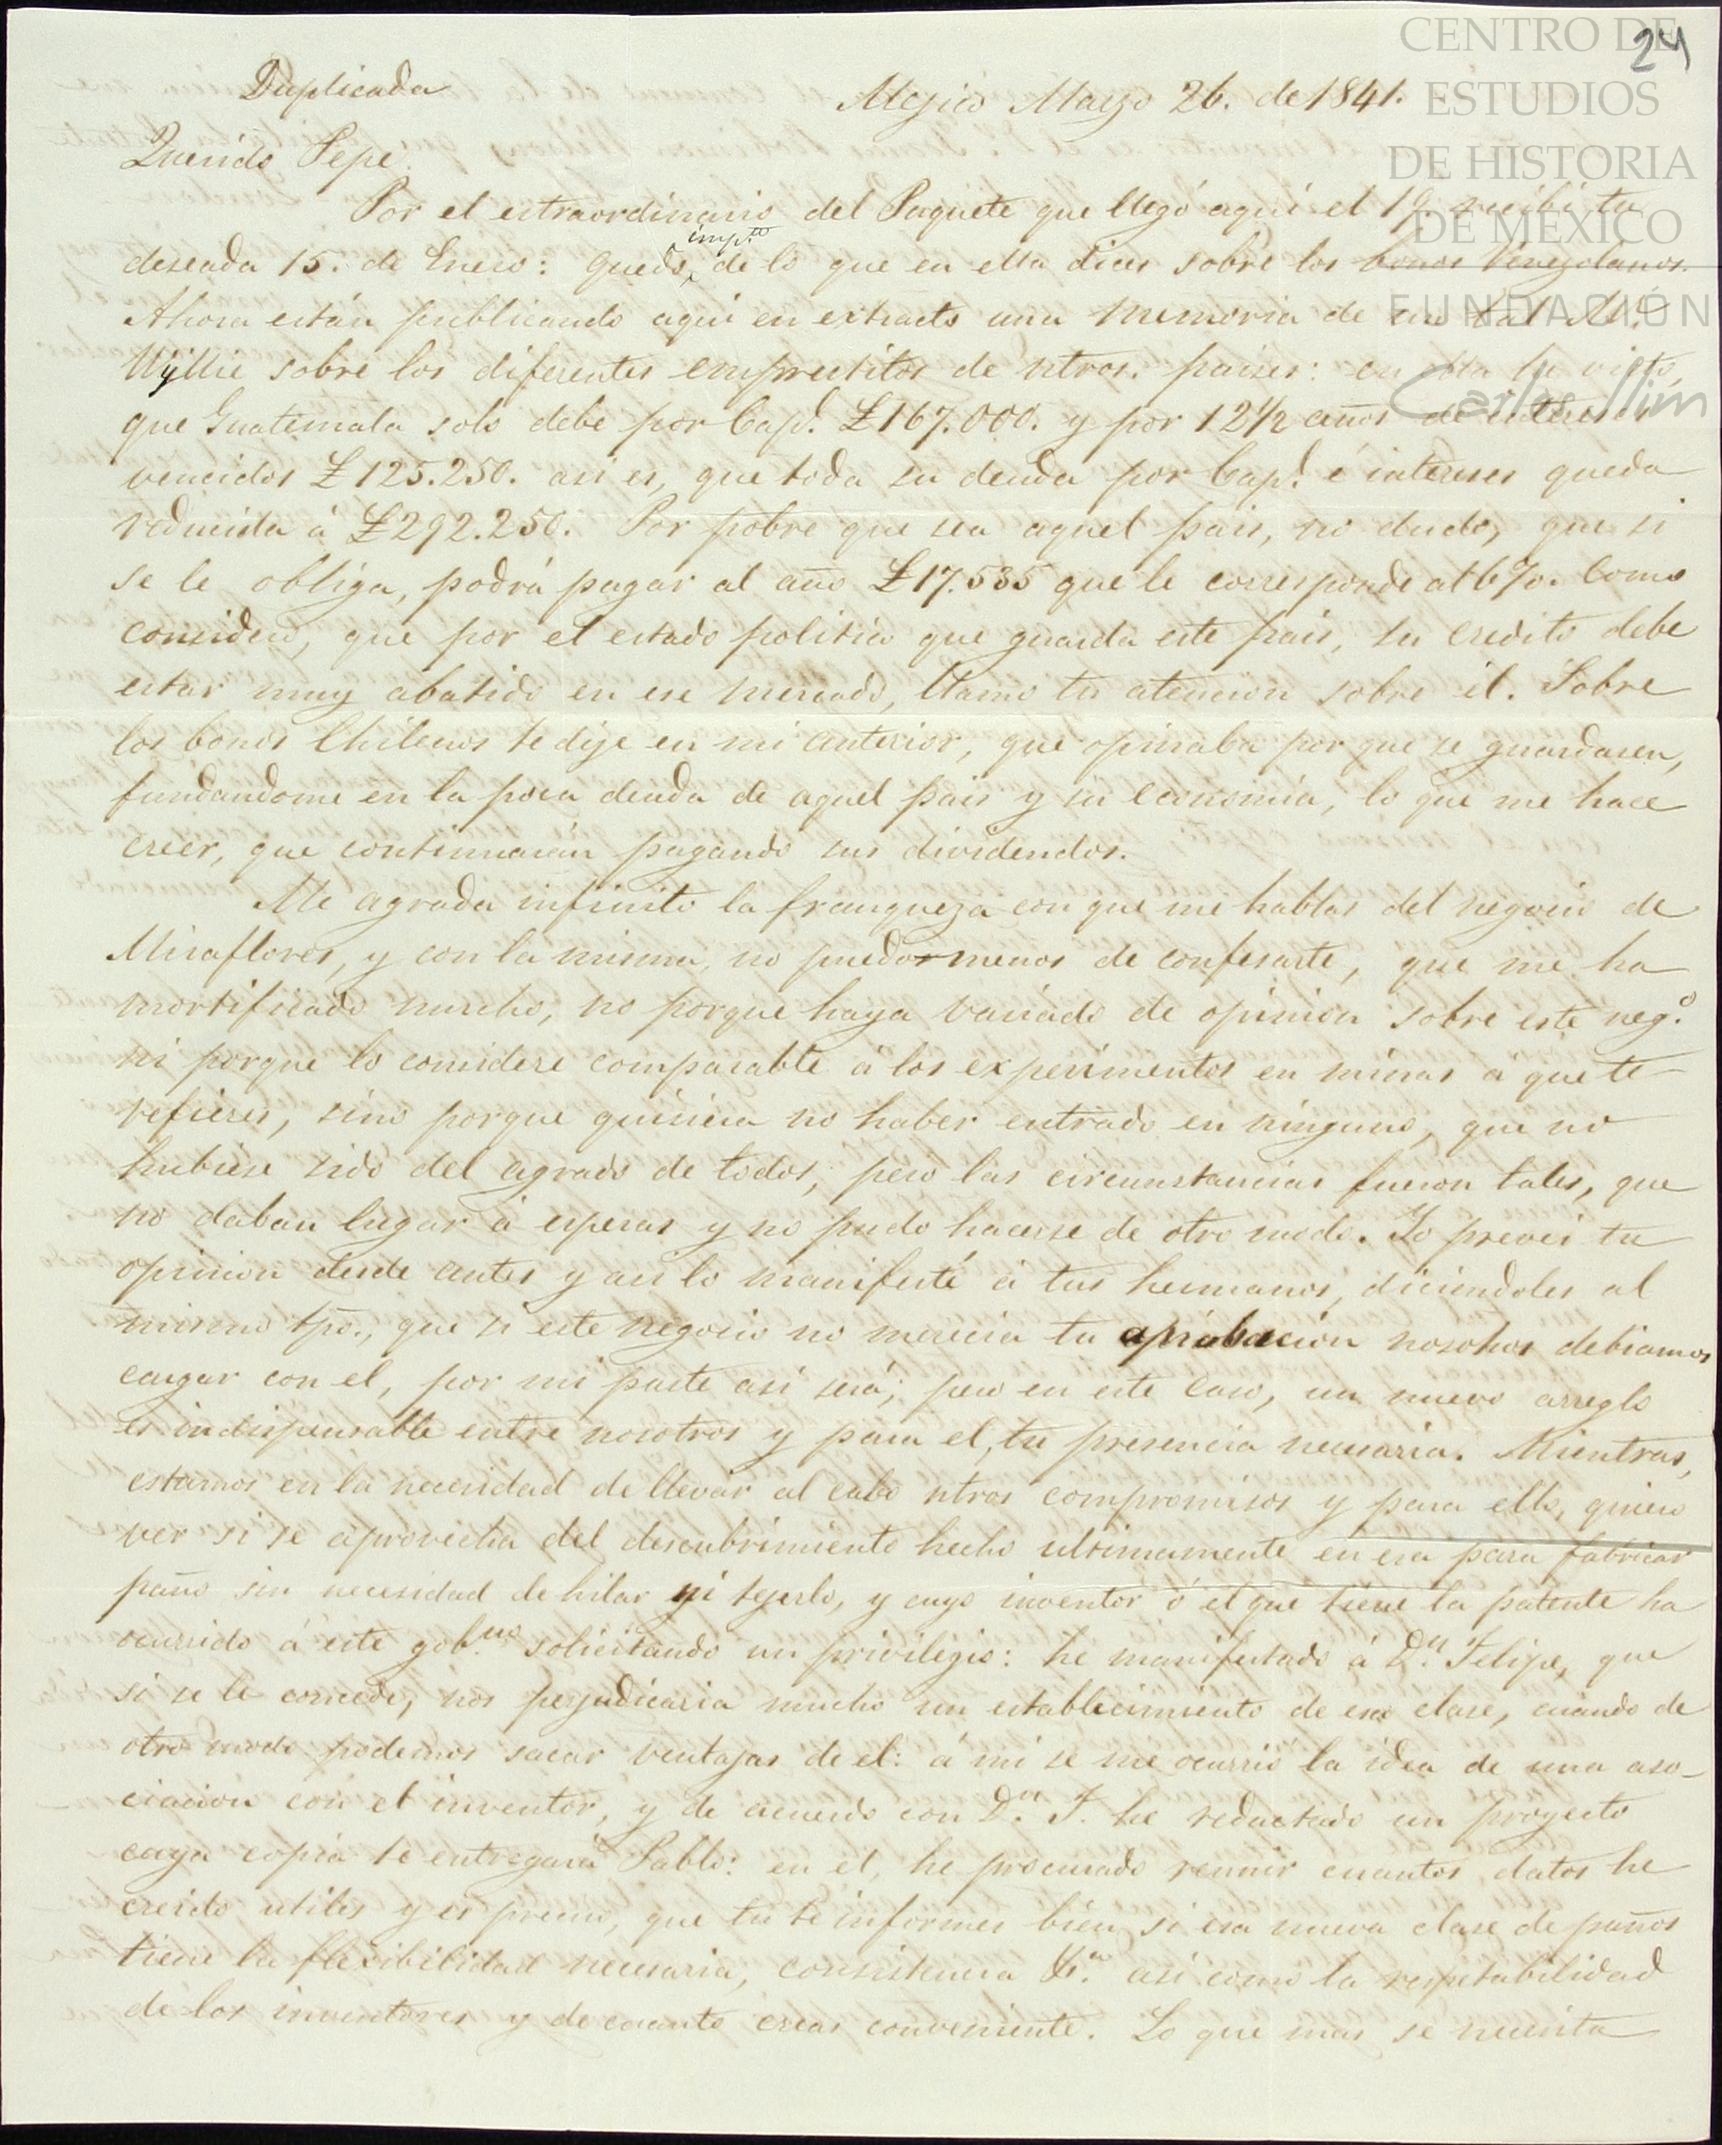 CENTRO DE
ESTUDIOS
DE HISTORIA
DE MÉXICO
FUNDACIÓN
Carlos Slim
24
Duplicada
Mejico Marzo 26. de 1841.
Querido Pepe.
Por el estraordinario del Paquete que llegó aquí el 19 recibí tu
deseada 15. de Enero: quedo imp.to de lo que en ella dices sobre los bonos Venezolanos.
Ahora están publicando aquí en extracto una memoria de un tal Mr.
Wyllie sobre los diferentes emprestitos de ntros. paises: en ella he visto,
que Guatemala solo debe por Cap.l £167.000. y por 12½ años de intereses
vencidos £125.250. asi es, que toda su deuda por Cap.l é intereses queda
reducida á £292.250. Por pobre que sea aquel pais, no dudo, que si
se le obliga, podrá pagar al año £17.535 que le corresponde al 6%. Como
considero, que por el estado politico que guarda este pais, su credito debe
estar muy abatido en ese mercado, llamo tu atencion sobre él. Sobre
los bonos Chilenos te dije en mi anterior, que opinaba por que se guardasen,
fundandome en la poca deuda de aquel pais y su economía, lo que me hace
creer, que continuarán pagando sus dividendos.
Me agrada infinito la franqueza con que me hablas del negocio de
Miraflores, y con la misma, no puedo menos de confesarte, que me ha
mortificado mucho, no porque haya variado de opinion sobre este neg.o
ni porque lo considere comparable á los experimentos en minas á que te
refieres, sino porque quisiera no haber entrado en ninguno, que no
hubiese sido del agrado de todos; pero las circunstancias fueron tales, que
no daban lugar á esperas y no pudo hacerse de otro modo. Yo preveí tu
opinion desde antes y asi lo manifesté á tus hermanos, diciendoles al
mismo tpo., que si este negocio no merecia tu aprobacion nosotros debiamos
cargar con el, por mi parte asi será; pero en este caso, un nuevo arreglo
es indispensable entre nosotros y para el, tu presencia necesaria. Mientras,
estamos en la necesidad de llevar al cabo ntros compromisos y para ello, quiero
ver si se aprovecha del descubrimiento hecho ultimamente en esa para fabricar
paño sin necesidad de hilar ni tejerlo, y cuyo inventor ó el que tiene la patente ha
ocurrido á este gob.no solicitando un privilegio: he manifestado á D.n Felipe, que
si se le concede, nos perjudicaria mucho un establecimiento de esa clase, cuando de
otro modo podemos sacar ventajas de el: á mi se me ocurrió la idea de una aso-
ciacion con el inventor, y de acuerdo con D.n F. he redactado un proyecto
cuya copia te entregará Pablo: en el, he procurado reunir cuantos datos he
creido utiles y es preciso, que tu te informes bien si esa nueva clase de paños
tiene la flexibilidad necesaria, consistencia &.a asi como la respetabilidad
de los inventores y de cuanto creas conveniente. Lo que mas se necesita